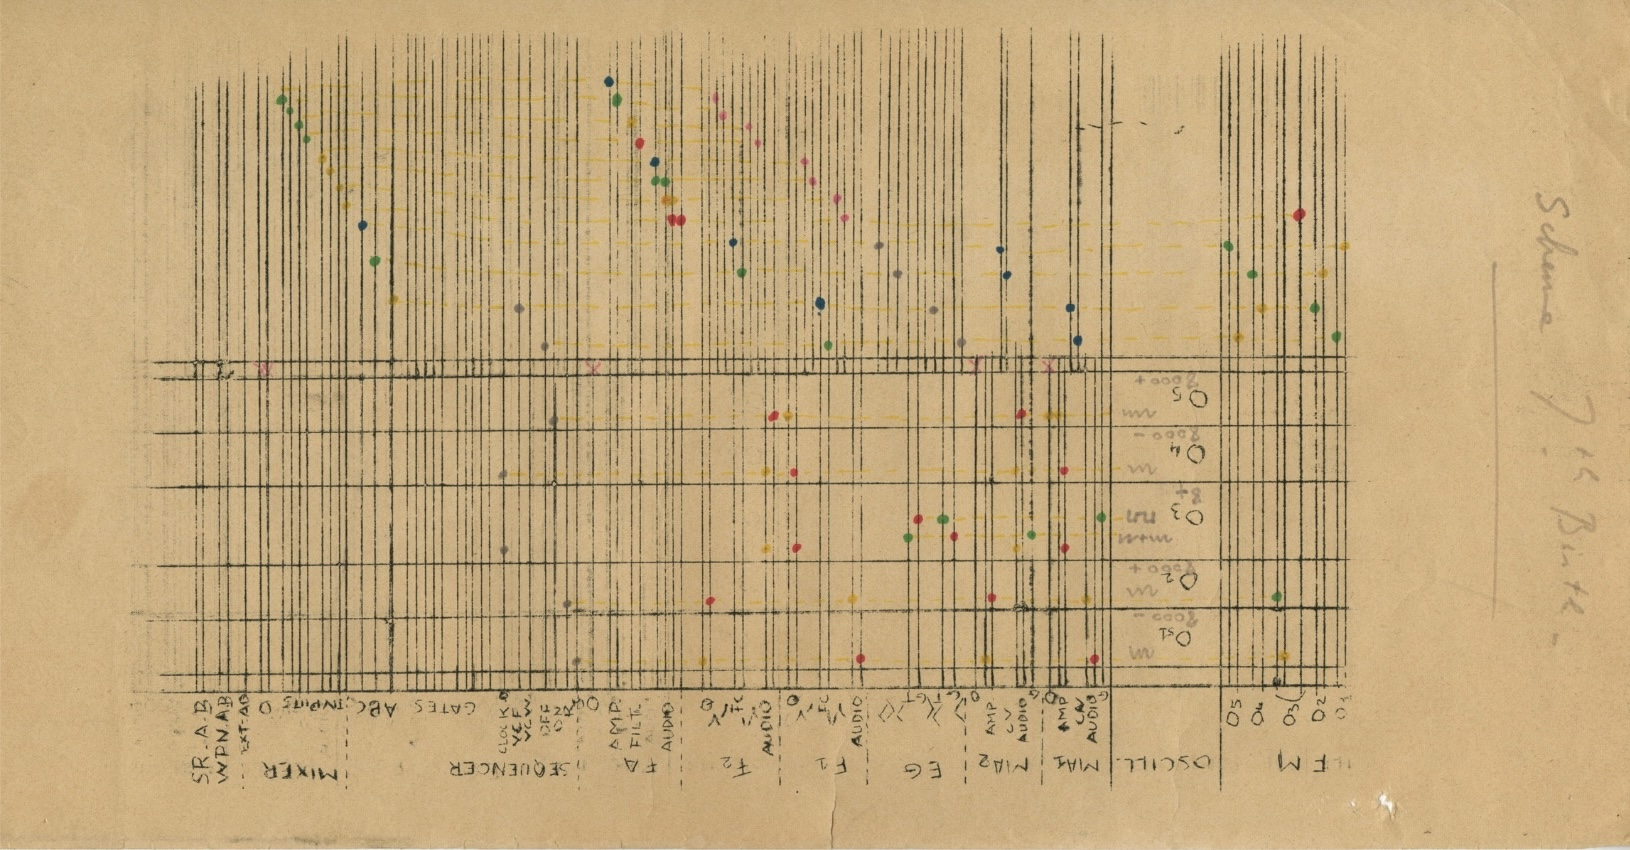 Schema 7th Birth -
8000+
O5
8000 -
O4
8+
O3
8000+
O2
8000 -
OS1
SR.A.B
WPN.AB
EXT.AD
O
INPUTS
ABC
GATES
CLOCK
VCF
VCW
OFF
ON
O
AMP.
FILT.
AUDIO
Q
FC
AUDIO
Q
FC
AUDIO
GT
O
AMP
CV
AUDIO
O
AMP
CV
AUDIO
G
O5
O4
O3
O2
O1
MIXER
SEQUENCER
FA
F2
F1
EG
MA2
MA1
OSCILL.
FM